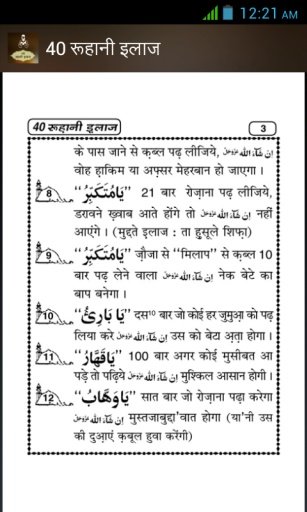 12:21 AM
40 रूहानी इलाज
40 रूहानी इलाज
3
के पास जाने से क़ब्ल पढ़ लीजिये, اِن شَآءَ اللہ عَزَّوَجَلَّ
वोह हाकिम या अफ़्सर मेहरबान हो जाएगा ।
8 “يَامُتَكَبِّرُ” 21 बार रोज़ाना पढ़ लीजिये,
डरावने ख़्वाब आते होंगे तो اِن شَآءَ اللہ عَزَّوَجَلَّ नहीं
आएंगे । (मुद्दते इलाज : ता हुसूले शिफ़ा)
9 “يَامُتَكَبِّرُ” ज़ौजा से “मिलाप” से क़ब्ल 10
बार पढ़ लेने वाला اِن شَآءَ اللہ عَزَّوَجَلَّ नेक बेटे का
बाप बनेगा ।
10 “يَا بَارِئُ” दस¹⁰ बार जो कोई हर जुमुआ़ को पढ़
लिया करे اِن شَآءَ اللہ عَزَّوَجَلَّ उस को बेटा अ़ता होगा ।
11 “يَاقَهَّارُ” 100 बार अगर कोई मुसीबत आ
पड़े तो पढ़िये اِن شَآءَ اللہ عَزَّوَجَلَّ मुश्किल आसान होगी ।
12 “يَاوَهَّابُ” सात बार जो रोज़ाना पढ़ा करेगा
اِن شَآءَ اللہ عَزَّوَجَلَّ मुस्तजाबुद्दा'वात होगा (या'नी उस
की दुआ़एं क़बूल हुवा करेंगी)